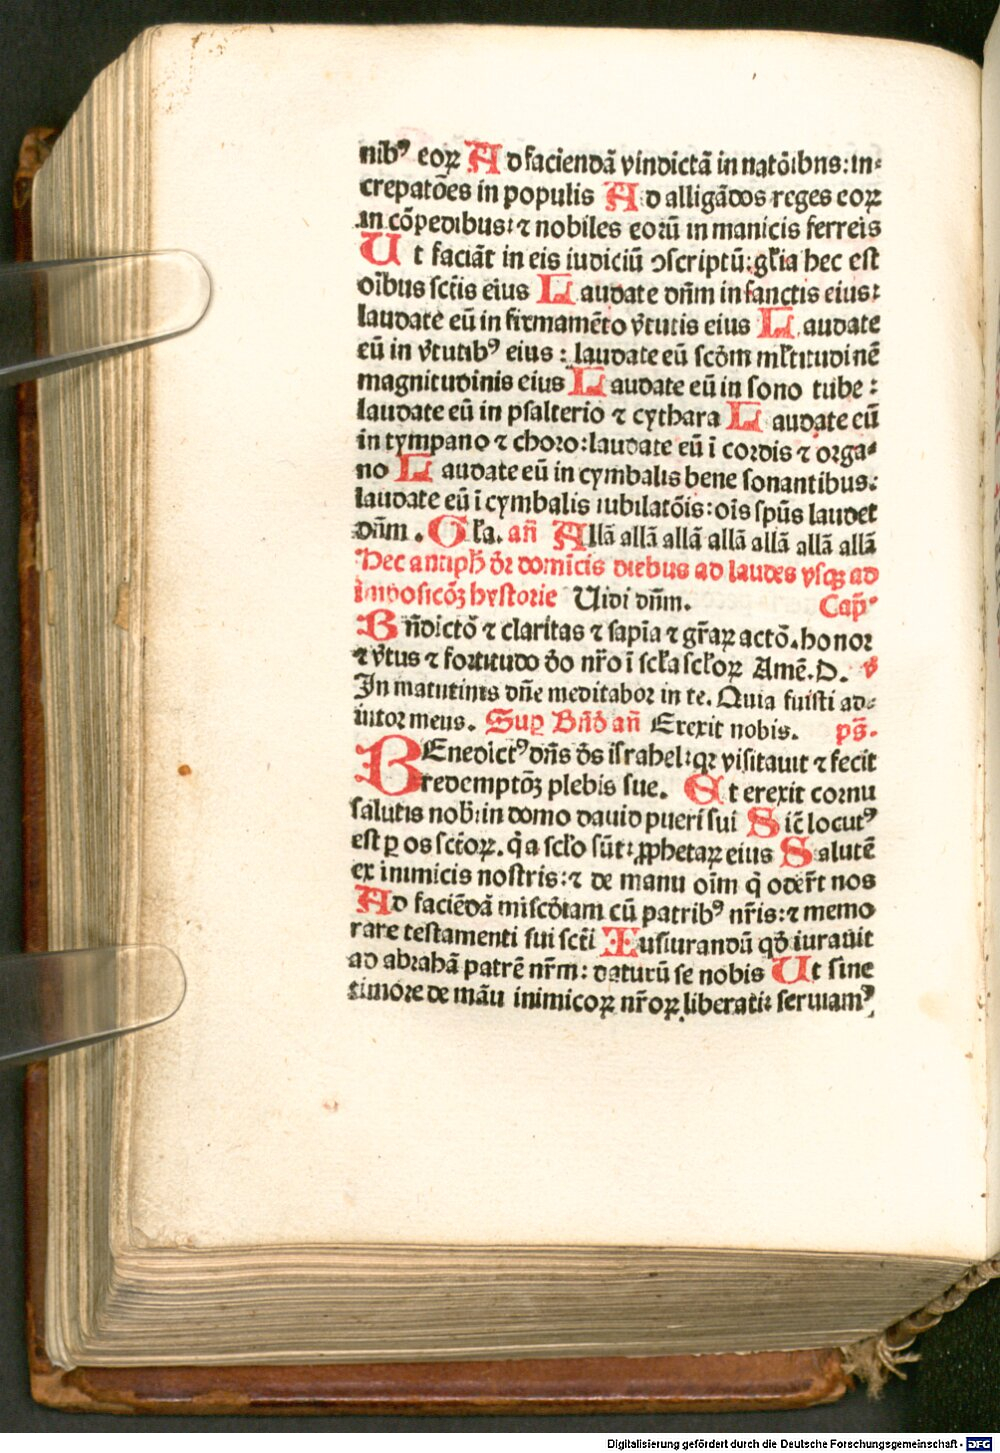 nibꝰ eoꝝ Ad faciendā vindictā in natōibns: in⸗
crepatōes in populis Ad alligādos reges eoꝝ
in cōpedibus: ⁊ nobiles eorū in manicis ferreis
Ut faciāt in eis iudiciū ↄscriptū: gl̄ia hec est
oībus sctīs eius Laudate dn̄m in sanctis eius:
laudate eū in firmamēto v̄tutis eius Laudate
eū in v̄tutibꝰ eius: laudate eū scd̄m ml̄titudinē
magnitudinis eius Laudate eū in sono tube:
laudate eū in psalterio ⁊ cythara Laudate eū
in tympano ⁊ choro: laudate eū ī cordis ⁊ orga⸗
no Laudate eū in cymbalis bene sonantibus:
laudate eū ī cymbalis iubilatōis: oīs spūs laudet
dn̄m. Gl̄a. an̄ Allā allā allā allā allā allā allā
Hec antiph̄ dr̄ domīcis diebus ad laudes vsqꝫ ad
imposicōꝫ hystorie Uidi dn̄m. Cap̄ꝰ
Bn̄dictō ⁊ claritas ⁊ sapīa ⁊ gr̄aꝝ actō. honor
⁊ v̄tus ⁊ fortitudo do nr̄o ī scl̄a scl̄oꝝ Amē. D. v̄
In matutinis dn̄e meditabor in te. Quia fuisti ad⸗
iutor meus. Suꝑ Bn̄d̄ an̄ Erexit nobis. ps̄.
BEnedictꝰ dn̄s d̄s israhel: qꝛ visitauit ⁊ fecit
redemptōꝫ plebis sue. Et erexit cornu
salutis nob̄: in domo dauid pueri sui Sic̄ locutꝰ
est ꝑ os sctōꝝ. q̄ a scl̄o sūt: ꝓphetaꝝ eius Salutē
ex inimicis nostris: ⁊ de manu oīm q̄ oder̄t nos
Ad faciēdā miscd̄iam cū patribꝰ nr̄is: ⁊ memo
rare testamenti sui sctī Iusiurandū qd̄ iurauit
ad abrahā patrē nr̄m: daturū se nobis Ut sine
timore de māu inimicoꝝ nr̄oꝝ liberati: seruiamꝰ
Digitalisierung gefördert durch die Deutsche Forschungsgemeinschaft - DFG